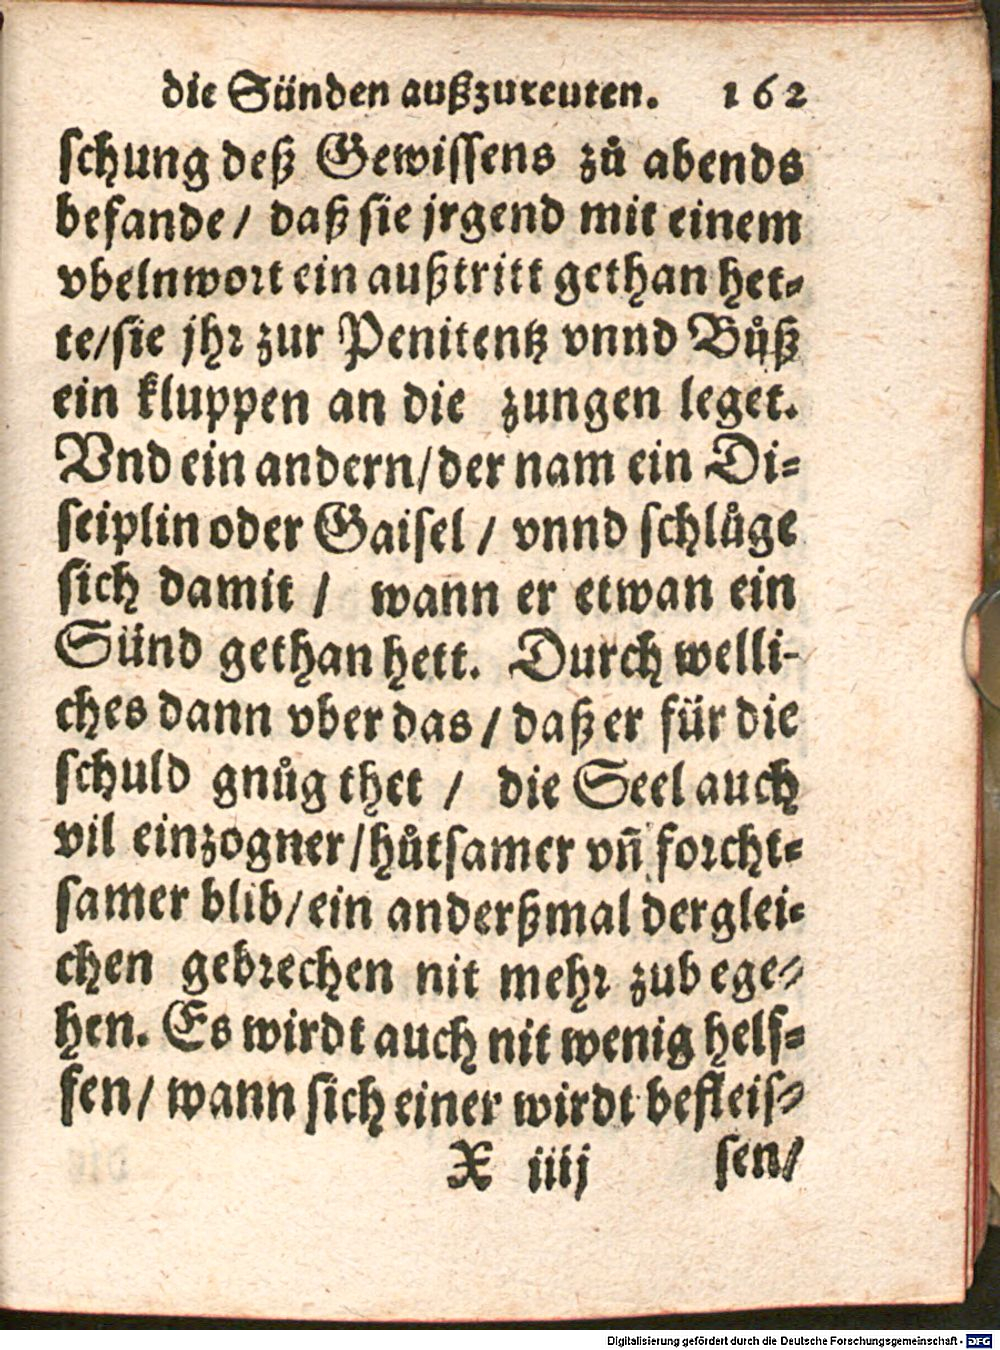 die Sünden außzureuten. 162
schung deß Gewissens zů abends
befande / daß sie jrgend mit einem
vbelnwort ein außtritt gethan het-
te/sie jhr zur Penitentz vnnd Bůß
ein kluppen an die zungen leget.
Vnd ein andern/der nam ein Di-
sciplin oder Gaisel / vnnd schlůge
sich damit / wann er etwan ein
Sünd gethan hett. Durch welli-
ches dann vber das / daß er für die
schuld gnůg thet / die Seel auch
vil einzogner/hůtsamer vn̄ forcht-
samer blib/ein anderßmal derglei-
chen gebrechen nit mehr zubege-
hen. Es wirdt auch nit wenig helf-
fen / wann sich einer wirdt befleis-
X iiij sen/
Digitalisierung gefördert durch die Deutsche Forschungsgemeinschaft - DFG